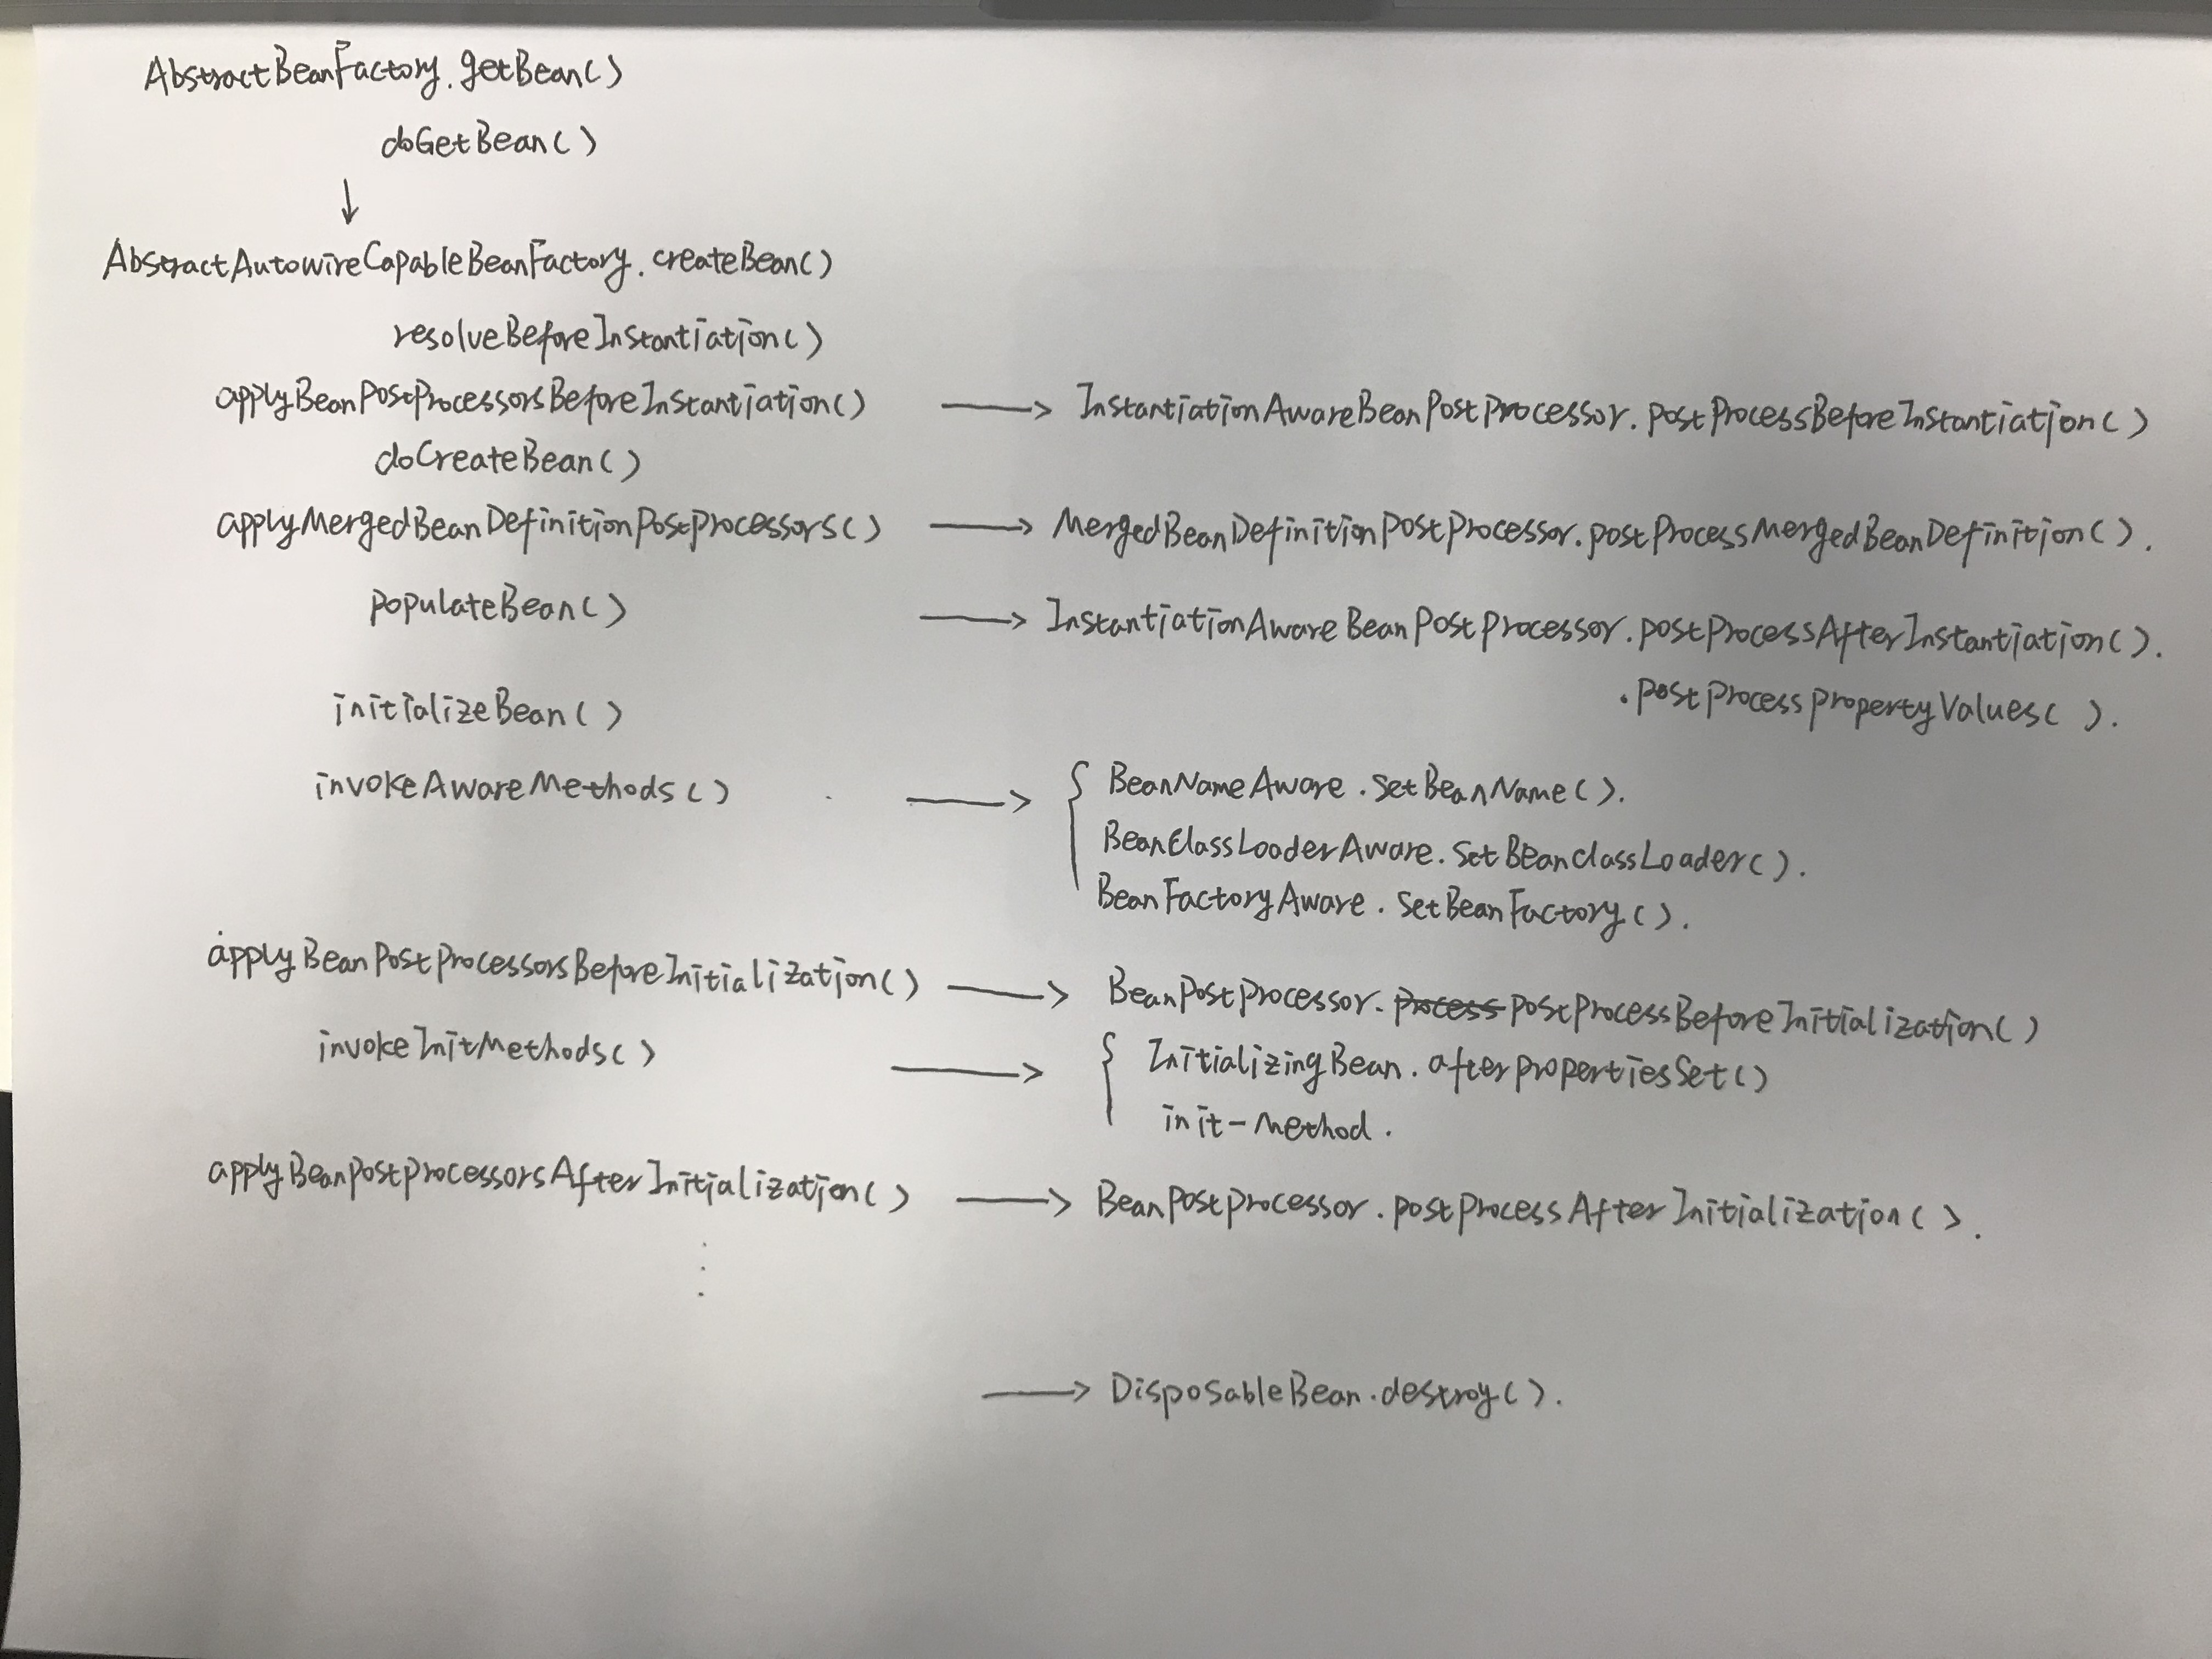 AbstractBeanFactory.getBean()
doGetBean()
↓
AbstractAutowireCapableBeanFactory.createBean()
resolveBeforeInstantiation()
applyBeanPostProcessorsBeforeInstantiation() → InstantiationAwareBeanPostProcessor.postProcessBeforeInstantiation()
doCreateBean()
applyMergedBeanDefinitionPostProcessors() → MergedBeanDefinitionPostProcessor.postProcessMergedBeanDefinition().
populateBean() → InstantiationAwareBeanPostProcessor.postProcessAfterInstantiation().
.postProcessPropertyValues().
initializeBean()
invokeAwareMethods() → { BeanNameAware.setBeanName().
BeanClassLoaderAware.setBeanClassLoader().
BeanFactoryAware.setBeanFactory().
applyBeanPostProcessorsBeforeInitialization() → BeanPostProcessor.process postProcessBeforeInitialization()
invokeInitMethods() → { InitializingBean.afterPropertiesSet()
init-method.
applyBeanPostProcessorsAfterInitialization() → BeanPostProcessor.postProcessAfterInitialization().
⋮
→ DisposableBean.destroy().